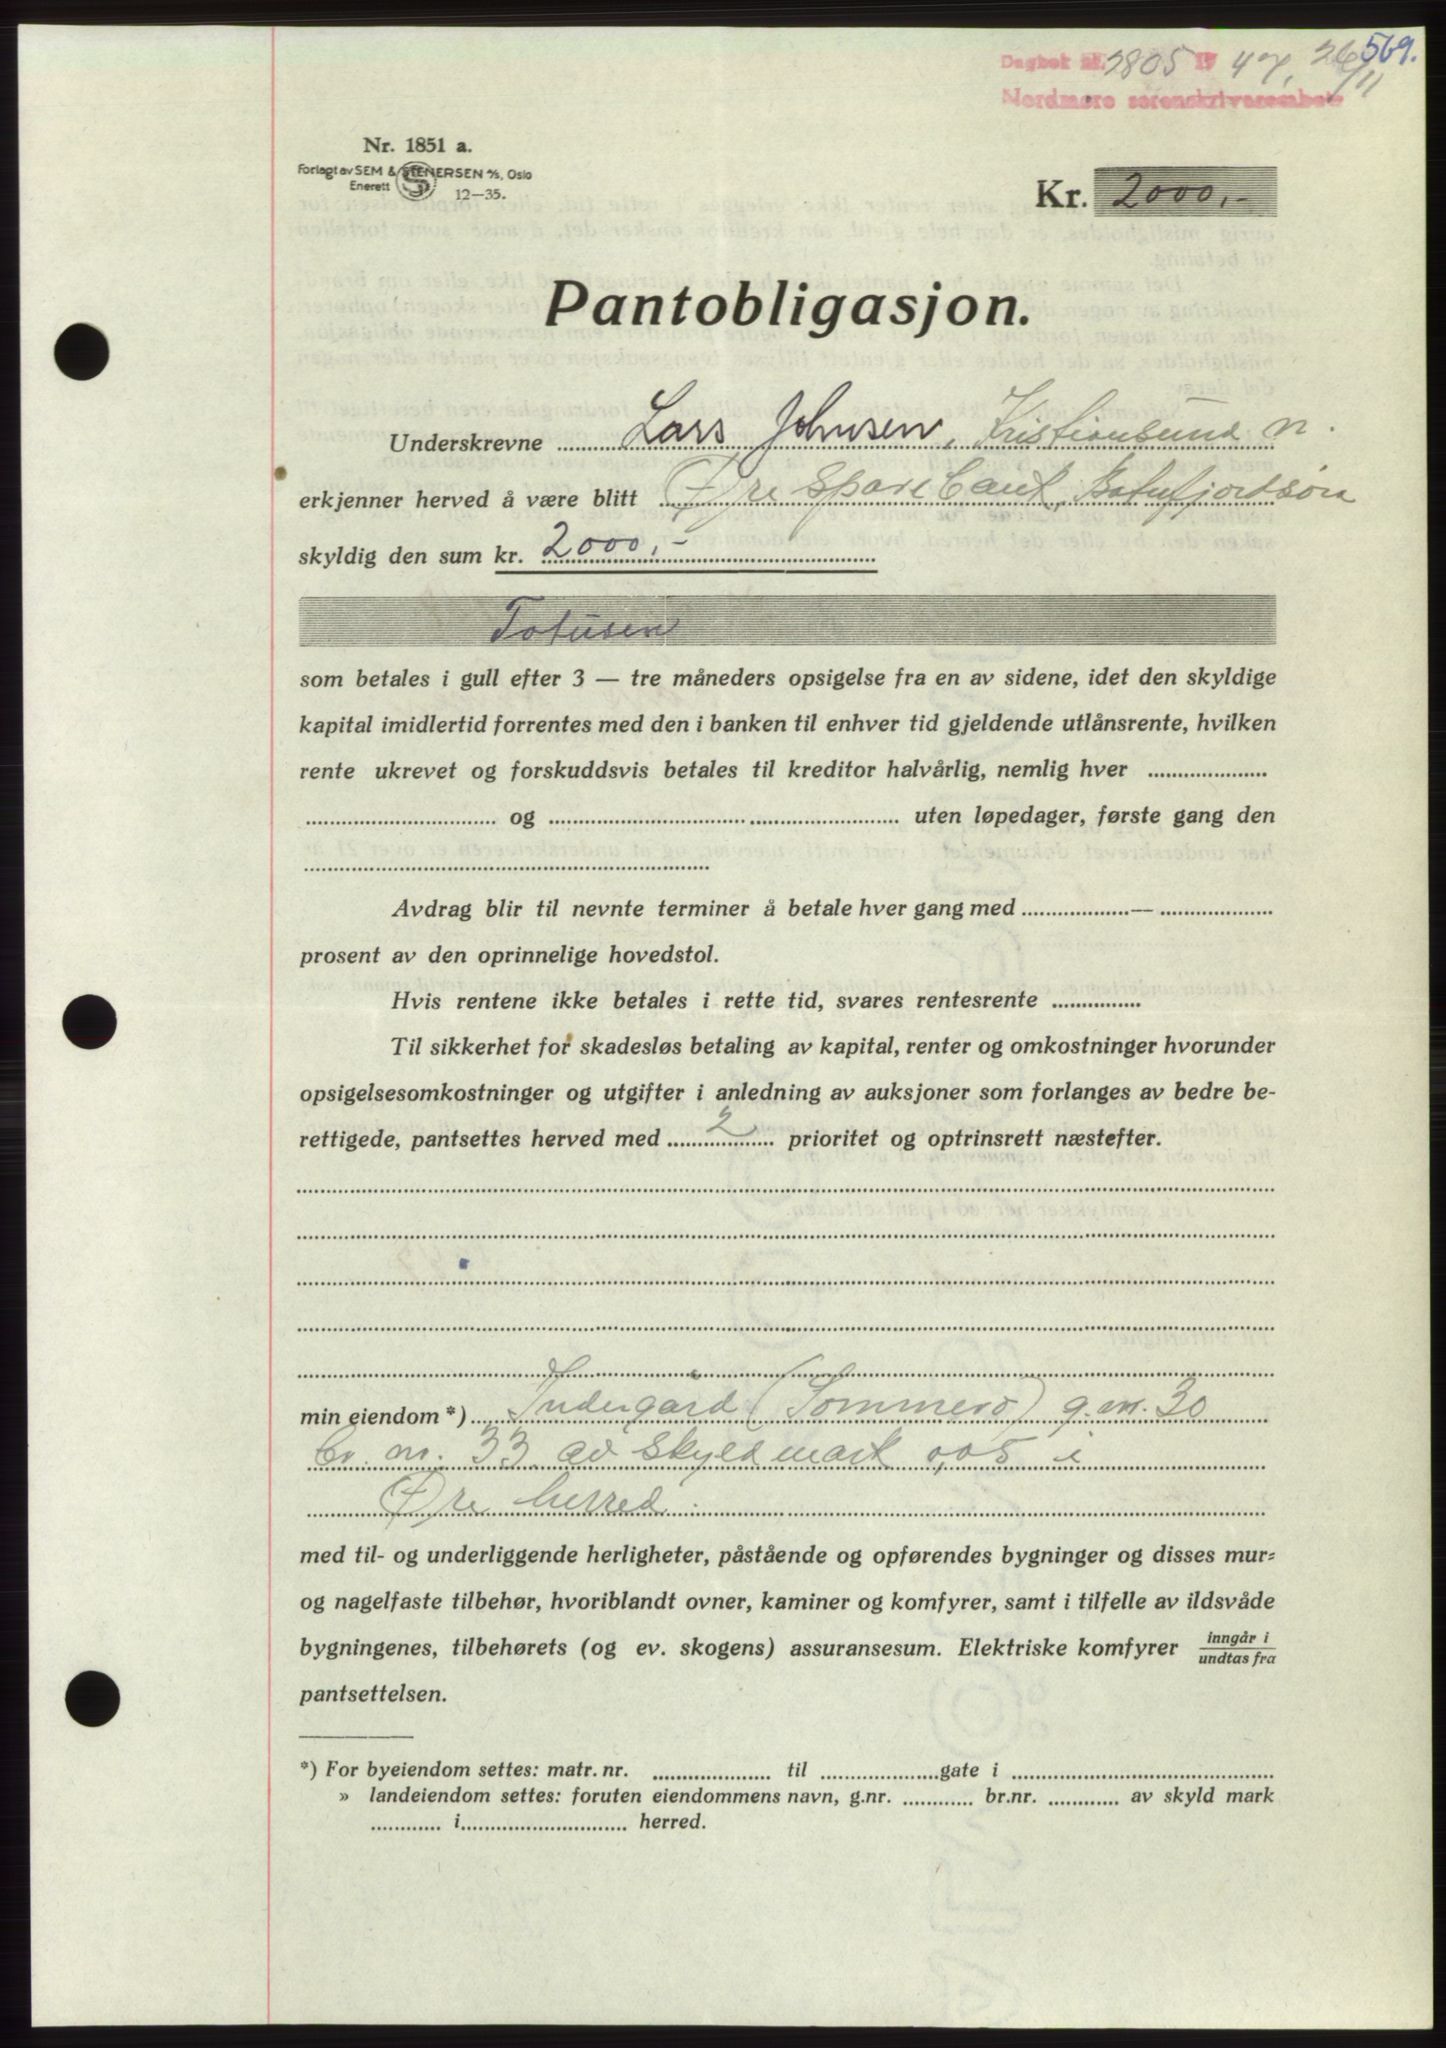 569.
Dagbok nr. 2805 19 47, 26/11
Nordmøre sorenskriverembete
Nr. 1851 a.
Forlagt av SEM & STENERSEN A/S, Oslo
Enerett 12—35.
Kr. 2000,-
Pantobligasjon.
Underskrevne Lars Johnsen, Kristiansund n.
erkjenner herved å være blitt Øre Sparebank, Batnfjordsøra
skyldig den sum kr. 2000,-
Totusen
som betales i gull efter 3 — tre måneders opsigelse fra en av sidene, idet den skyldige
kapital imidlertid forrentes med den i banken til enhver tid gjeldende utlånsrente, hvilken
rente ukrevet og forskuddsvis betales til kreditor halvårlig, nemlig hver
og uten løpedager, første gang den
Avdrag blir til nevnte terminer å betale hver gang med —
prosent av den oprinnelige hovedstol.
Hvis rentene ikke betales i rette tid, svares rentesrente
Til sikkerhet for skadesløs betaling av kapital, renter og omkostninger hvorunder
opsigelsesomkostninger og utgifter i anledning av auksjoner som forlanges av bedre be-
rettigede, pantsettes herved med 2 prioritet og optrinsrett næstefter.
min eiendom *) Indergård (Sommero) g.nr. 30
br. nr. 33 av skyld mark 0,05 i
Øre herred
med til- og underliggende herligheter, påstående og opførendes bygninger og disses mur-
og nagelfaste tilbehør, hvoriblandt ovner, kaminer og komfyrer, samt i tilfelle av ildsvåde
bygningenes, tilbehørets (og ev. skogens) assuransesum. Elektriske komfyrer inngår i / undtas fra
pantsettelsen.
*) For byeiendom settes: matr. nr. til gate i
» landeiendom settes: foruten eiendommens navn, g.nr. br.nr. av skyld mark
i herred.